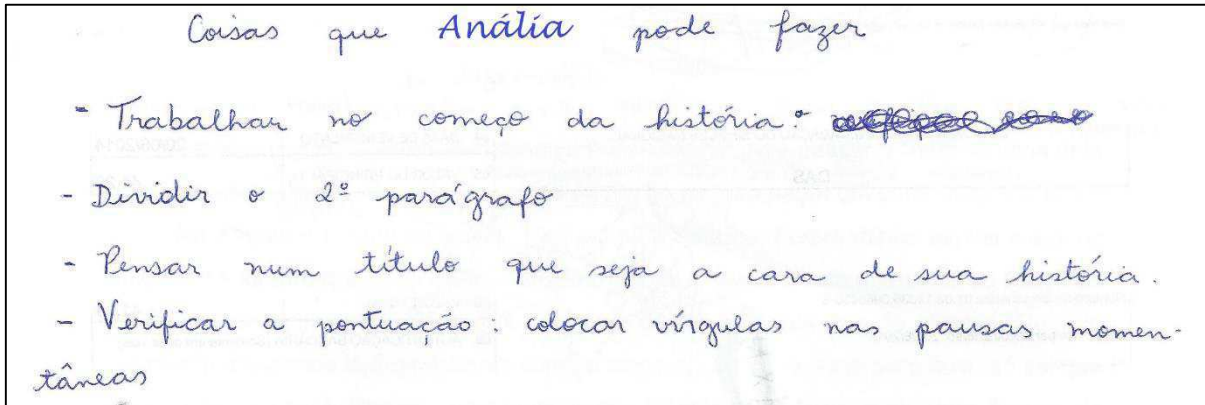 Coisas que Anália pode fazer
- Trabalhar no começo da história.
- Dividir o 2º parágrafo
- Pensar num título que seja a cara de sua história.
- Verificar a pontuação: colocar vírgulas nas pausas momen-
tâneas